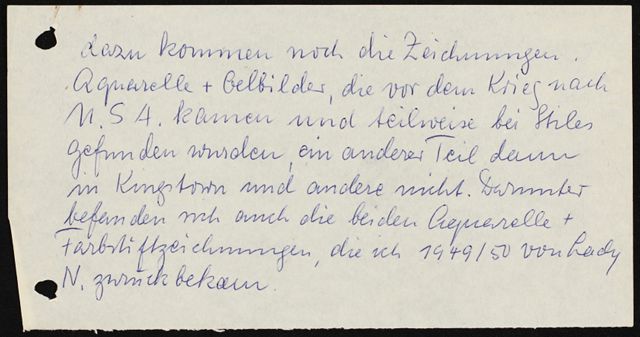 dazu kommen noch die Zeichnungen.
Aquarelle + Oelbilder, die vor dem Krieg nach
U.S.A. kamen und teilweise bei Stiles
gefunden wurden, ein anderer Teil dann
in Kingstown und andere nicht. Darunter
befanden sich auch die beiden Aquarelle +
Farbstiftzeichnungen, die ich 1949/50 von Lady
N. zurückbekam.